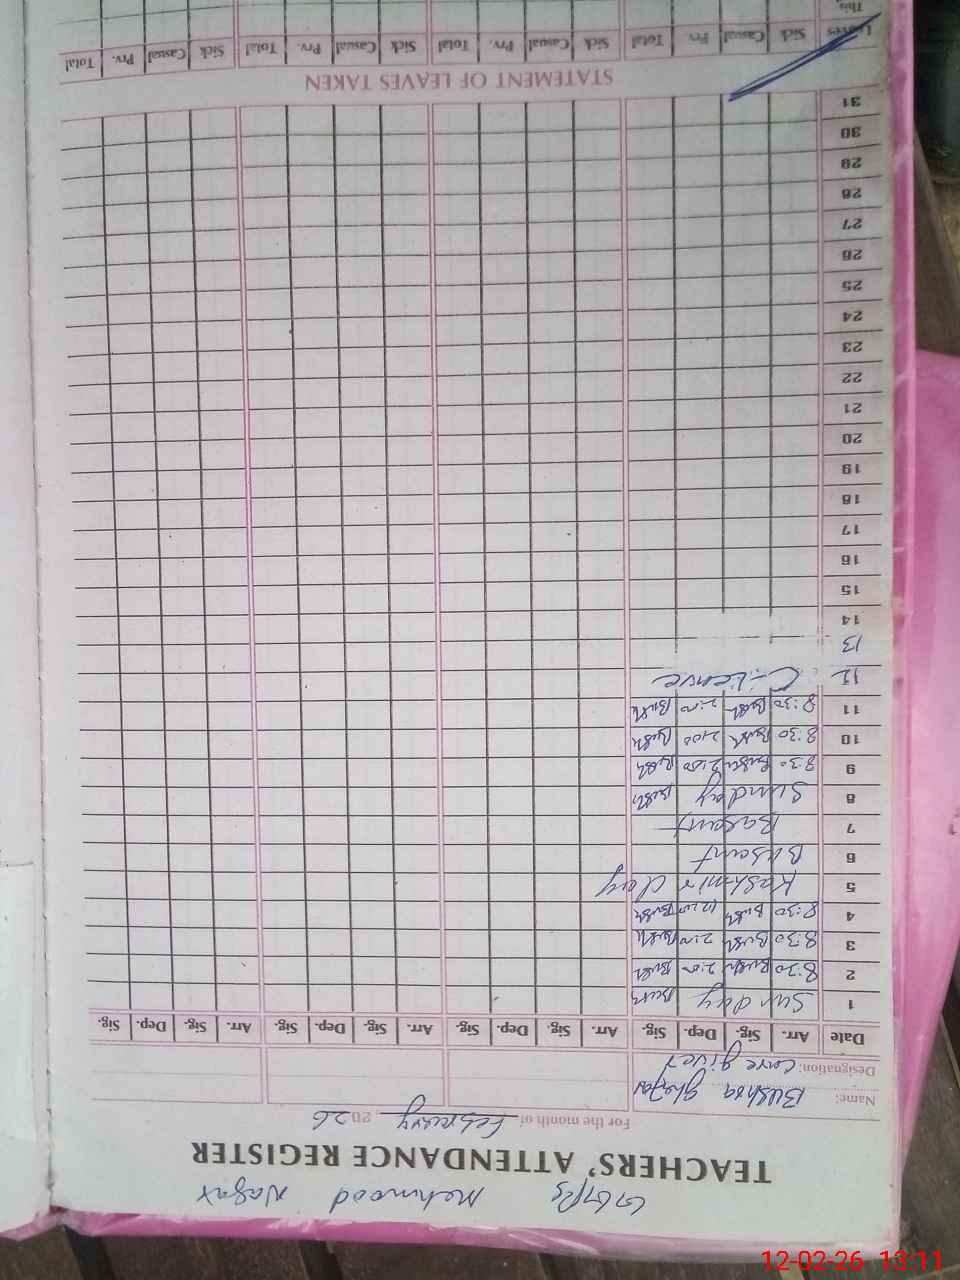 GGPS Mehmood Nagar
TEACHERS' ATTENDANCE REGISTER
For the month of February, 2026
Name: Bushra Ghafar
Designation: care giver
Date Arr. Sig. Dep. Sig. Arr. Sig. Dep. Sig. Arr. Sig. Dep. Sig. Arr. Sig. Dep. Sig.
1 Sunday
2 8:30 Bush 2:00 Bush
3 8:30 Bush 2:00 Bush
4 8:30 Bush 12:00 Bush
5 Kashmir day
6 Basant
7 Basant
8 Sunday Bush
9 8:30 Bush 2:00 Bush
10 8:30 Bush 2:00 Bush
11 8:30 Bush 2:00 Bush
12 C-leave
13
14
15
16
17
18
19
20
21
22
23
24
25
26
27
28
29
30
31
STATEMENT OF LEAVES TAKEN
Leaves Sick Casual Prv. Total Sick Casual Prv. Total Sick Casual Prv. Total Sick Casual Prv. Total
This
12-02-26 13:11